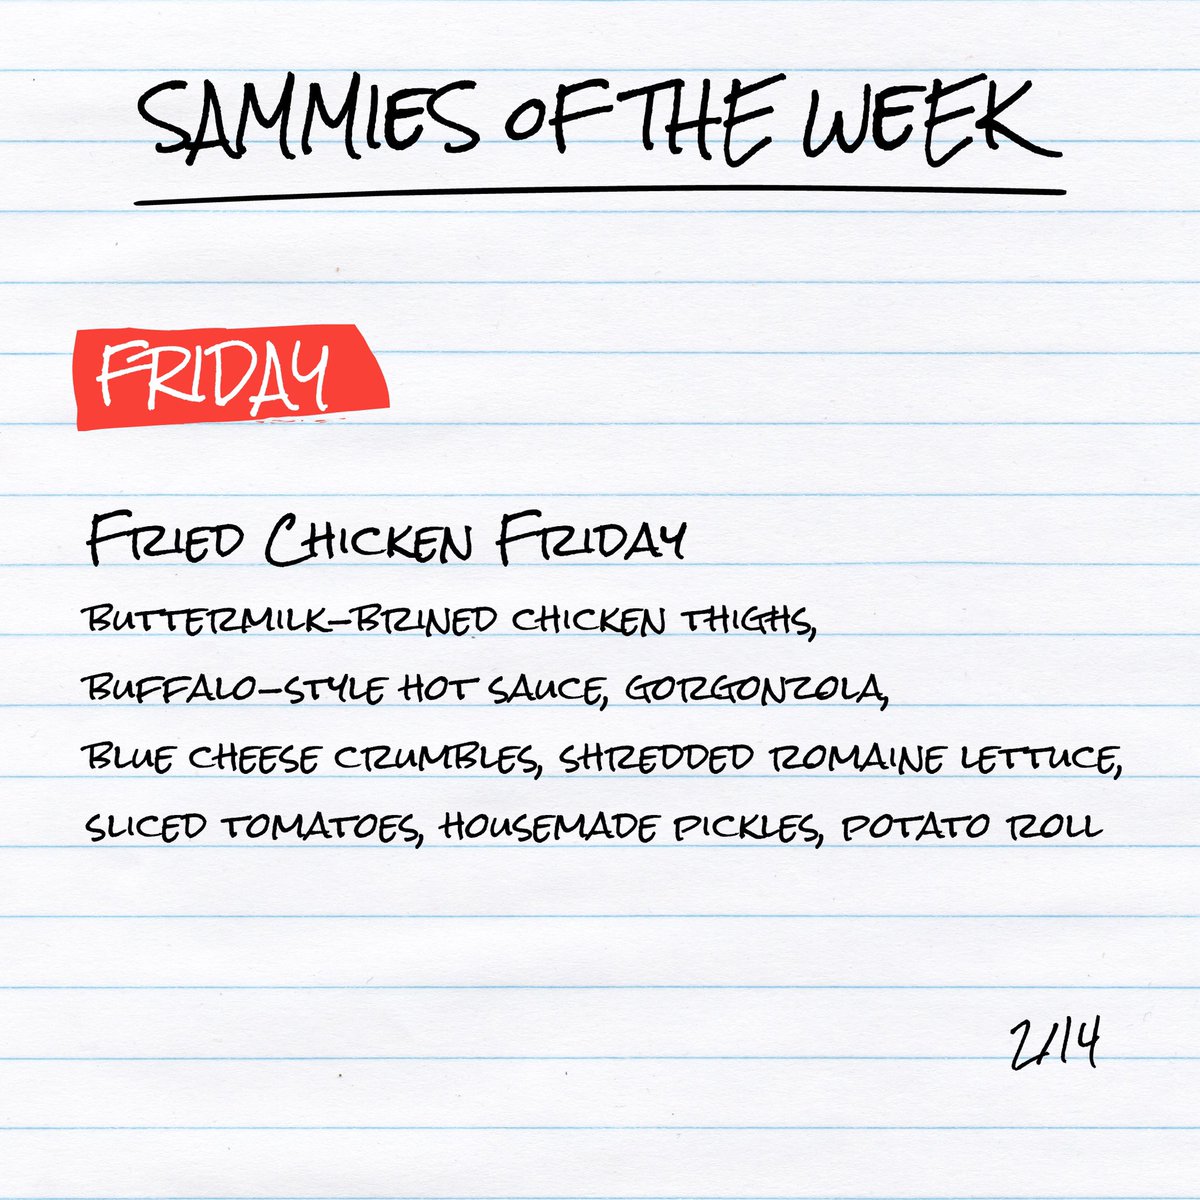 SAMMIES OF THE WEEK
FRIDAY
FRIED CHICKEN FRIDAY
BUTTERMILK-BRINED CHICKEN THIGHS,
BUFFALO-STYLE HOT SAUCE, GORGONZOLA,
BLUE CHEESE CRUMBLES, SHREDDED ROMAINE LETTUCE,
SLICED TOMATOES, HOUSEMADE PICKLES, POTATO ROLL
2/14